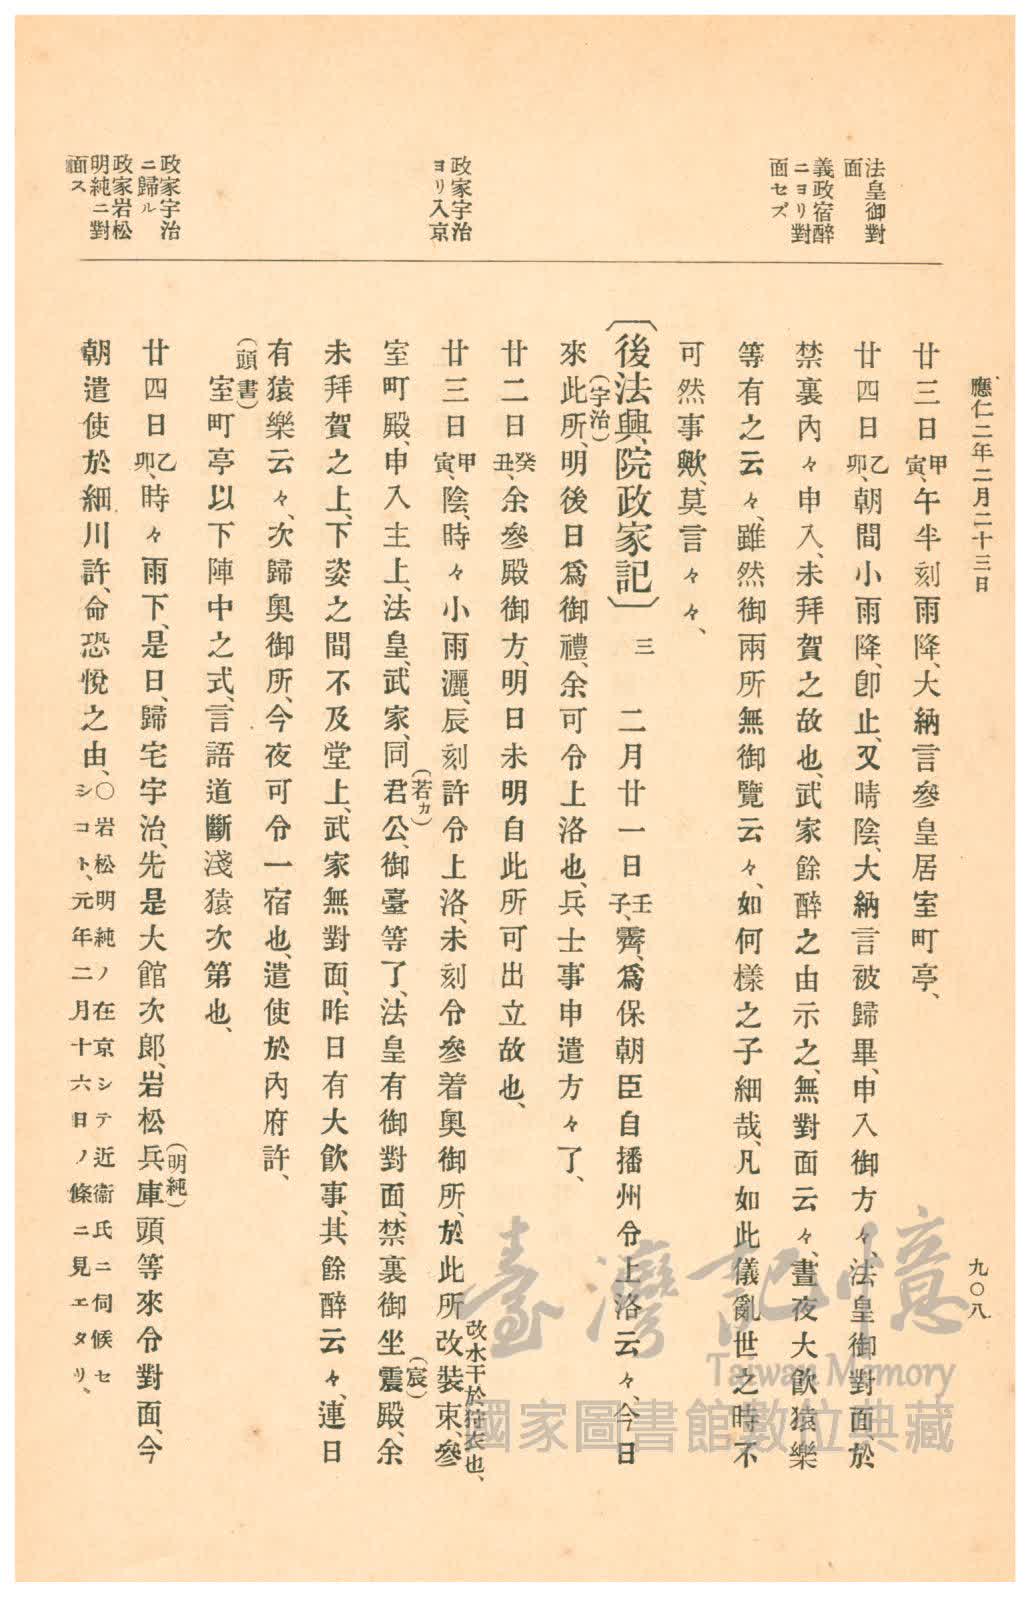 應仁二年二月二十三日
九〇八
法皇御對
面
義政宿醉
ニヨリ對
面セズ
政家宇治
ヨリ入京
政家宇治
ニ歸ル
政家岩松
明純ニ對
面ス
廿三日甲寅、午半刻雨降、大納言參皇居室町亭、
廿四日乙卯、朝間小雨降、卽止、又晴陰、大納言被歸畢、申入御方々、法皇御對面、於
禁裏內々申入、未拜賀之故也、武家餘醉之由示之、無對面云々、晝夜大飮猿樂
等有之云々、雖然御兩所無御覽云々、如何樣之子細哉、凡如此儀亂世之時不
可然事歟、莫言々々、
〔後法興院政家記〕 三 二月廿一日壬子、霽、爲保朝臣自播州令上洛云々、今日
來此所、(宇治)明後日爲御禮、余可令上洛也、兵士事申遣方々了、
廿二日癸丑、余參殿御方、明日未明自此所可出立故也、
廿三日甲寅、陰、時々小雨灑、辰刻許令上洛、未刻令參着奧御所、於此所改裝束、改水干於狩衣也、參
室町殿、申入主上、法皇、武家、同君(若カ)公、御臺等了、法皇有御對面、禁裏御坐震(宸)殿、余
未拜賀之上、下姿之間不及堂上、武家無對面、昨日有大飮事、其餘醉云々、連日
有猿樂云々、次歸奧御所、今夜可令一宿也、遣使於內府許、
(頭書)室町亭以下陣中之式、言語道斷淺猿次第也、
廿四日乙卯、時々雨下、是日、歸宅宇治、先是大館次郞、岩松兵庫頭(明純)等來令對面、今
朝遣使於細川許、命恐悅之由、〇岩松明純ノ在京シテ近衞氏ニ伺候セ
シコト、元年二月十六日ノ條ニ見エタリ、
臺灣記憶
Taiwan Memory
國家圖書館數位典藏